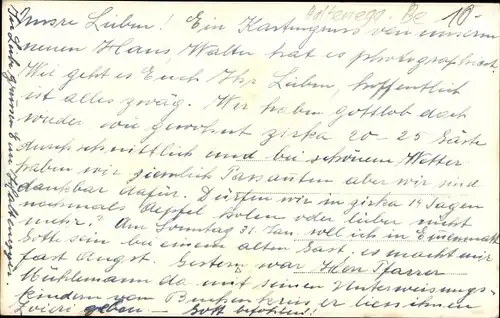 Hältenegg. Be 10.-
Unsre Lieben! Ein Kartengruss von unserm
neuen Haus Walter hat es photographiert
Wie geht es Euch Ihr Lieben, hoffentlich
ist alles zwäg. Wir haben gottlob doch
wieder wie gewohnt zirka 20-25 Gäste
durchschnittlich und bei schönem Wetter
haben wir ziemlich Passanten aber wir sind
dankbar dafür. Dürfen wir in zirka 14 Tagen
nochmals Aepfel holen oder lieber nicht
mehr? Am Sonntag 31. Jan. soll ich in
Gotte sein bei einem alten Gast. es macht mir
fast Angst. Gestern war Herr Pfarrer
Mühlemann da mit seinen Unterweisungs-
kindern vom er liess ihnen
Zvieri geben – Gott befohlen!
In Liebe grüssen Eure